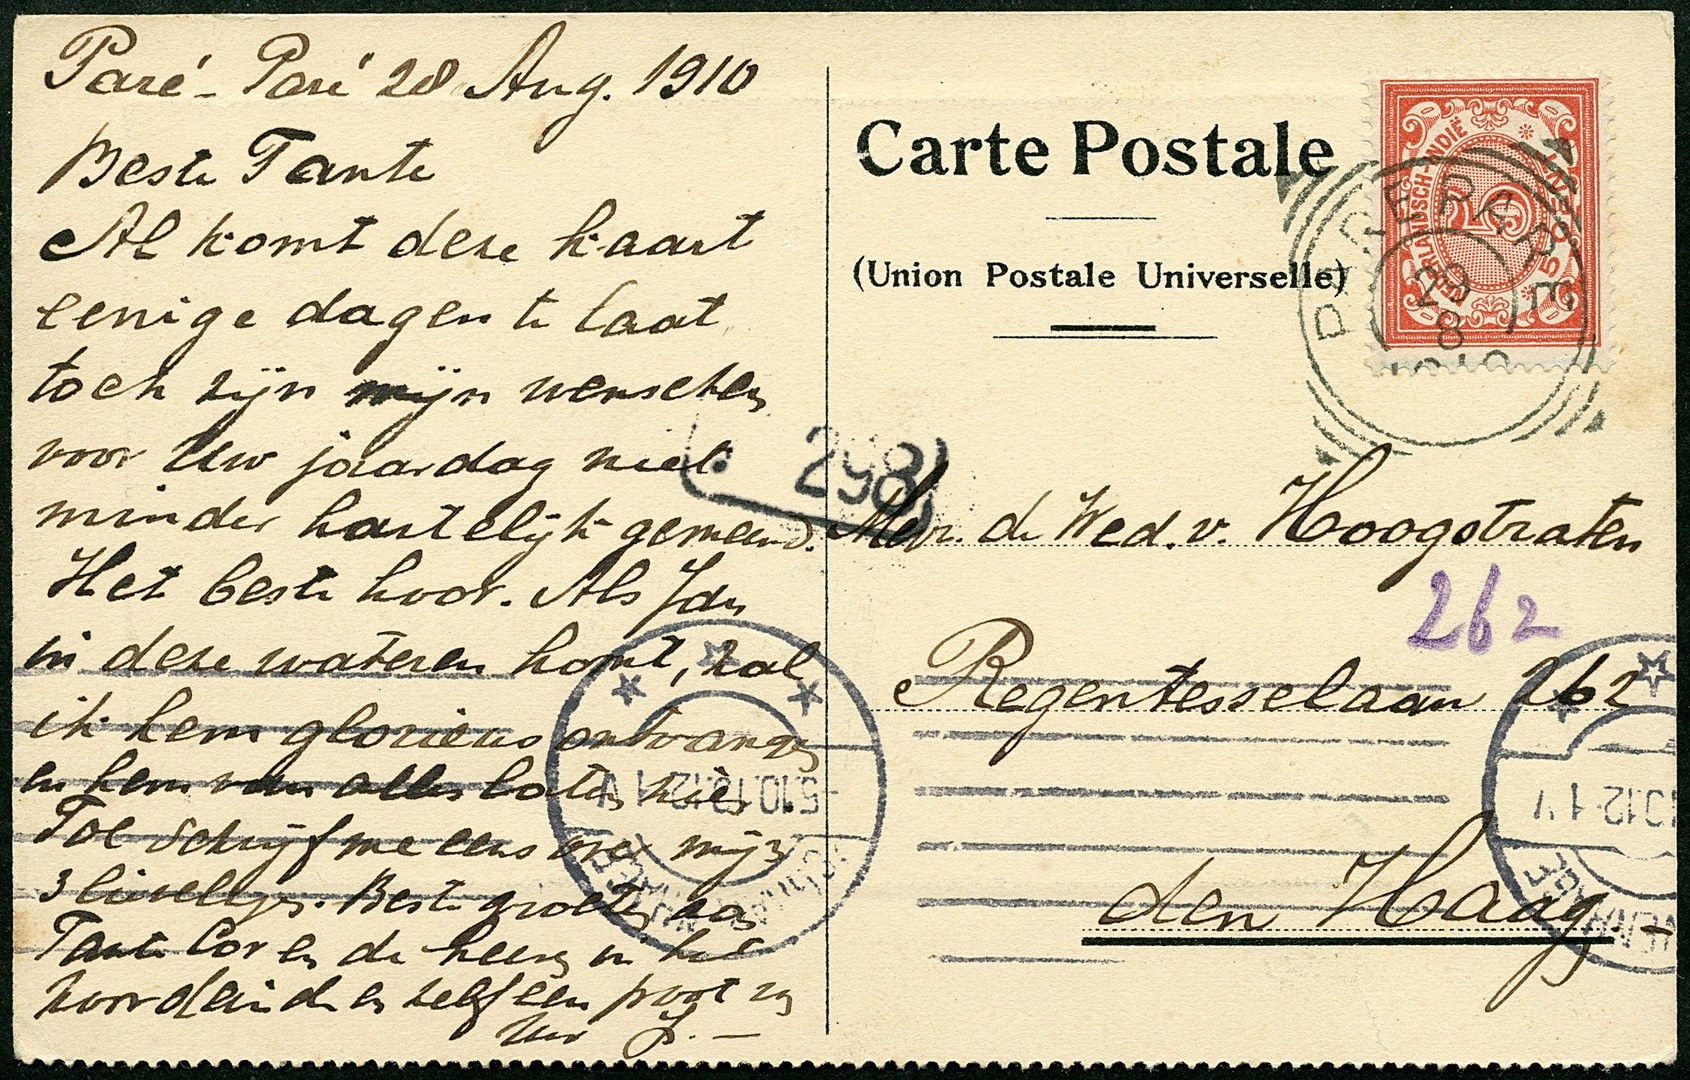 Paré-Paré 28 Aug. 1910
Beste Tante
Al komt deze kaart
eenige dagen te laat
toch zijn mijn wenschen
voor Uw jaardag niet
minder hartelijk gemeend.
Het beste hoor. Als
in deze wateren komt, zal
ik hem glorieus ontvangen
en hem van alles laten zien
Toe schrijf me eens over mijn
3 lievelings. Beste groeten aan
Tante Cor en de heeren in het
en zelf een poot van
Uw J. —
Carte Postale
(Union Postale Universelle)
NEDERLANDSCH-INDIË
5 CENT 5
PARE PARE
29
8
1910
298
Mevr. de Wed. v. Hoogstraten
262
Regentesselaan 262
den Haag. -
5.10.10.12-1 V
'S GRAVENHAGE
10.12-1 V